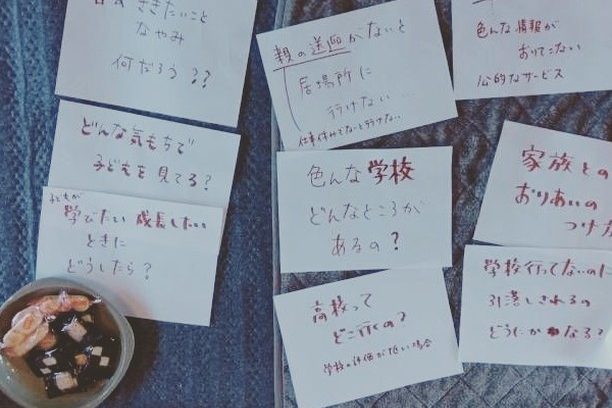 ききたいこと
なやみ
何だろう??
どんな気もちで
子どもを見てる?
子どもが
学びたい 成長したい
ときに
どうしたら?
親の送迎がないと
居場所に
行けない…
仕事休めてないと行けない
色んな学校
どんなところが
あるの?
高校って
どこ行くの?
学校の評価が低い場合
色んな情報が
おりてこない
公的なサービス
家族との
おりあいの
つけ方
学校行ってないのに
引落しされるの
どうにかなる?